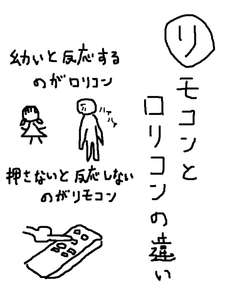 リモコンと
ロリコンの違い
幼いと反応する
のがロリコン
ハァ
ハァ
押さないと反応しない
のがリモコン